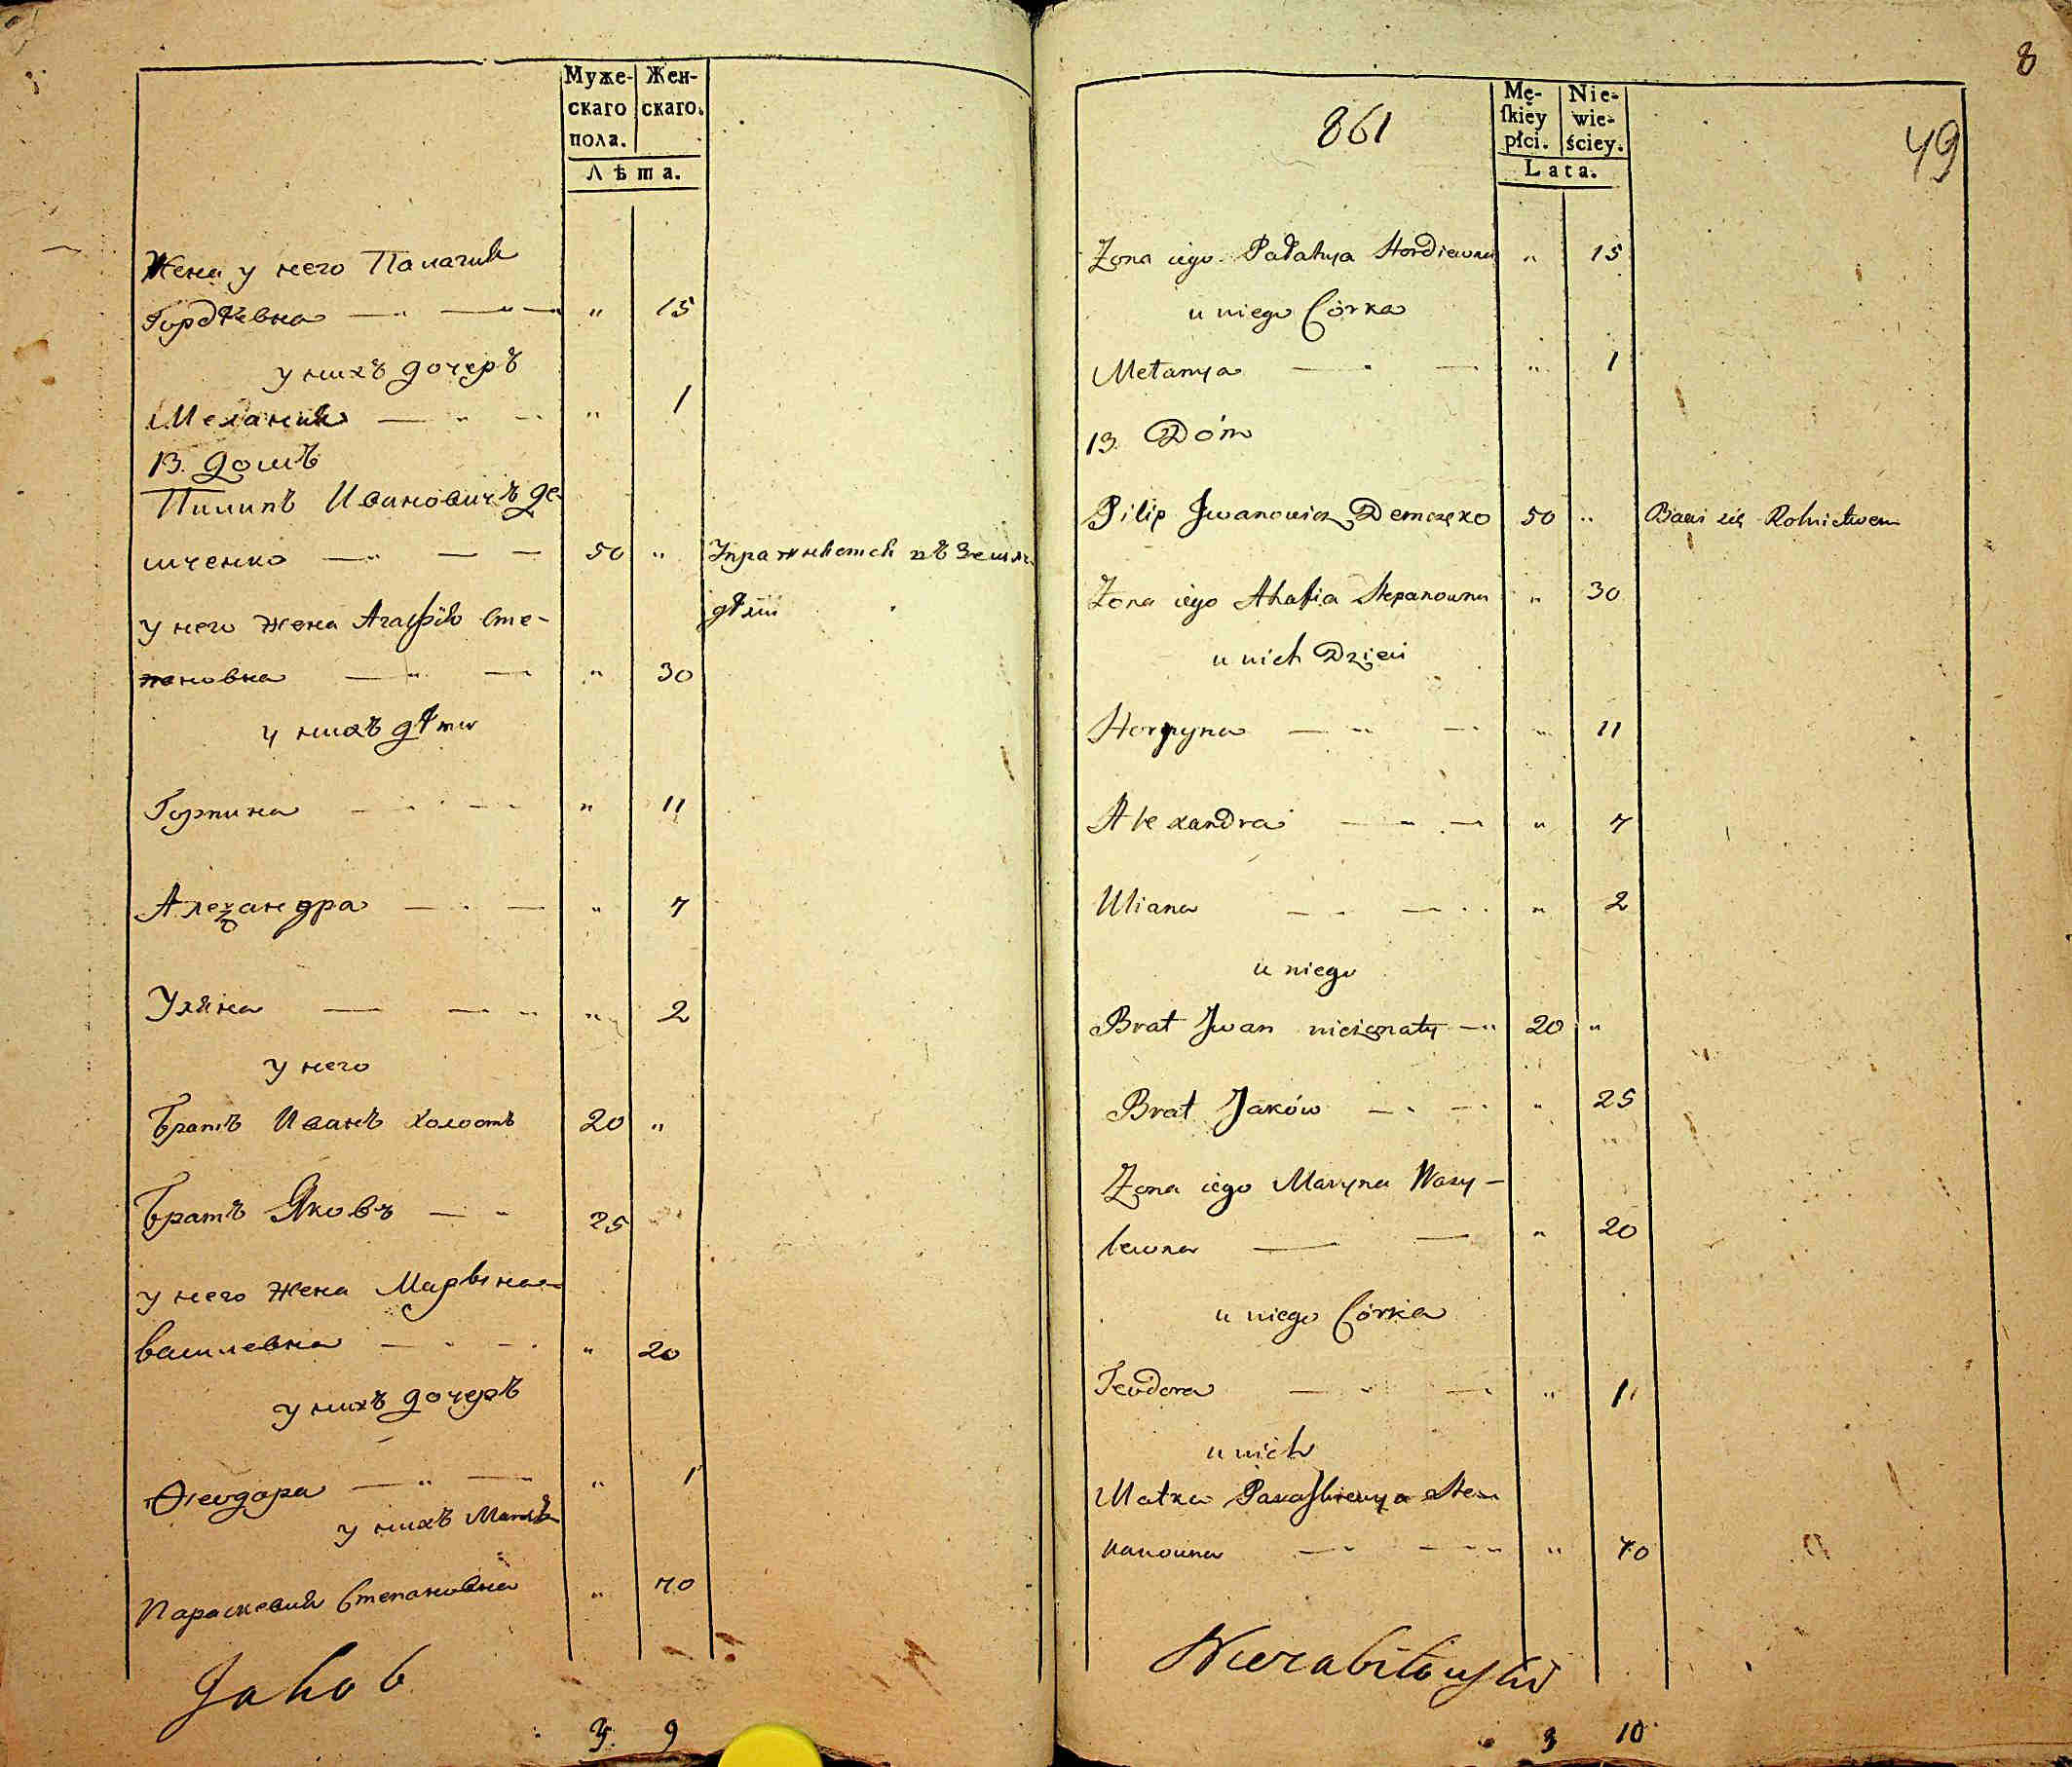 Муже-
скаго
пола.
Жен-
скаго.
Лѣта.
Жена у него Палагия
Гордѣевна — " — " — " 15
у нихъ дочерь
Мелания — " — " 1
13. домъ
Пилипъ Ивановичъ де
мченко — " — — 50 "
Упражняется въ Земле
дѣлiи
у него жена Агафiя Сте-
пановна — " — " 30
у нихъ дѣти
Горпина — " — " 11
Алеѯандра — " — " 7
Уляна — — " " 2
у него
Братъ Иванъ холостъ 20 "
Братъ Яковъ — " 25
у него жена Марына
василевна — " — " 20
у нихъ дочерь
Ѳеодора — " — " 1
у нихъ Мать
Параскевия Степановна " 70
Jakob
3. 9
8
49
861
Mę-
ſkiey
płci.
Nie-
wie-
ściey.
Lata.
Zona iego Pałahya Hordiewna " 15
u niego Córka
Mełanya — " — " 1
13. Dóm
Pilip Jwanowicz Demczęko 50 "
Bawi się Rolnictwem
Zona iego Ahafia Stepanowna " 30
u nich Dzieci
Horpyna — " — " 11
Alexandra — " — " 7
Uliana — " — " " 2
u niego
Brat Jwan nieżonaty — " 20 "
Brat Jaków — " — " " 25
Zona iego Maryna Wasy-
lewna — — " 20
u niego Córka
Teodora — " — " 1
u nich
Matka Paraſkiewya Ste
panowna — " — " " 70
3 10